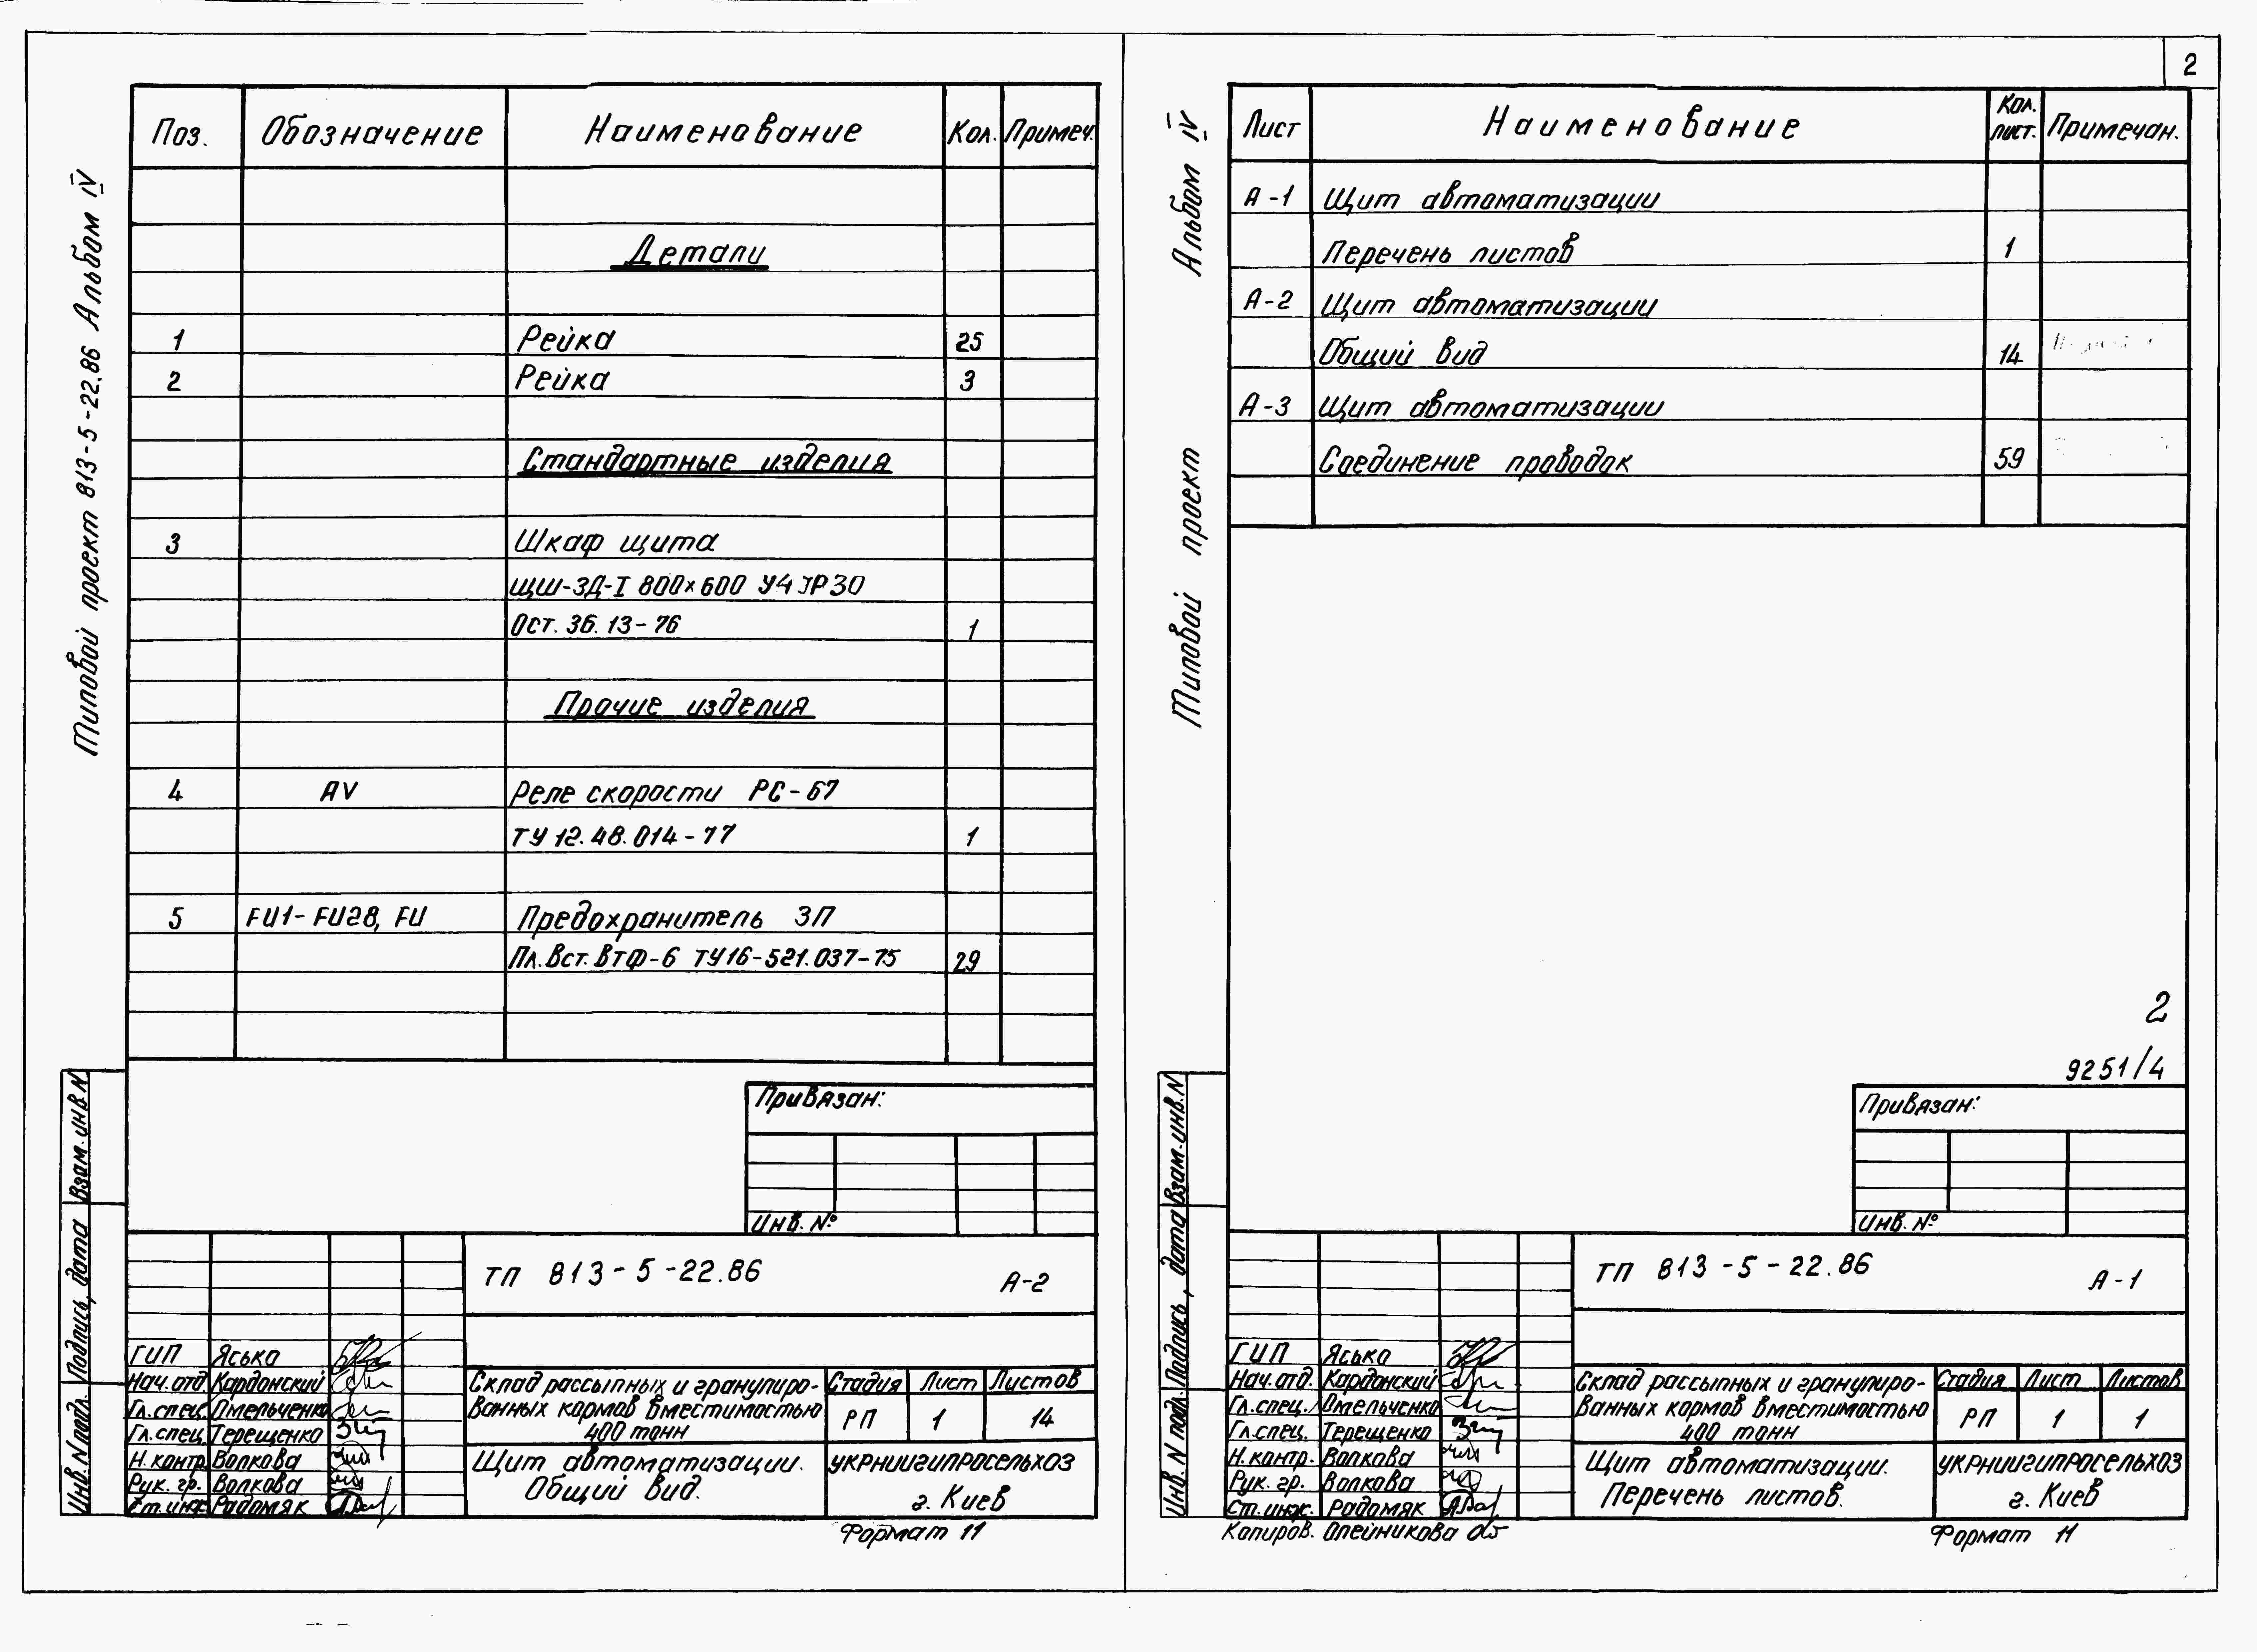 2
Типовой проект 813-5-22.86 Альбом IV
Поз. Обозначение Наименование Кол. Примеч.
Детали
1 Рейка 25
2 Рейка 3
Стандартные изделия
3 Шкаф щита
ЩШ-ЗД-I 800×600 У4 IP30
Ост. 36.13-76 1
Прочие изделия
4 AV Реле скорости РС-67
ТУ 12.48.014-77 1
5 FU1-FU28, FU Предохранитель ЗП
Пл. Вст. ВТФ-6 ТУ16-521.037-75 29
Привязан:
Инв. №
Взам. инв. N
Подпись, дата
Инв. N подл.
ТП 813-5-22.86 А-2
ГИП Яська
Нач. отд. Кардонский
Гл. спец. Омельченко
Гл. спец. Терещенко
Н. контр. Волкова
Рук. гр. Волкова
Ст. инж. Радомяк
Склад рассыпных и гранулиро-
ванных кормов вместимостью
400 тонн
Стадия Лист Листов
РП 1 14
Щит автоматизации.
Общий вид.
УКРНИИГИПРОСЕЛЬХОЗ
г. Киев
Формат 11
Типовой проект Альбом IV
Лист Наименование Кол. лист. Примечан.
А-1 Щит автоматизации
Перечень листов 1
А-2 Щит автоматизации
Общий вид 14
А-3 Щит автоматизации
Соединение проводок 59
2
9251/4
Привязан:
Инв. №
Взам. инв. N
Подпись, дата
Инв. N подл.
ТП 813-5-22.86 А-1
ГИП Яська
Нач. отд. Кардонский
Гл. спец. Омельченко
Гл. спец. Терещенко
Н. контр. Волкова
Рук. гр. Волкова
Ст. инж. Радомяк
Склад рассыпных и гранулиро-
ванных кормов вместимостью
400 тонн
Стадия Лист Листов
РП 1 1
Щит автоматизации.
Перечень листов.
УКРНИИГИПРОСЕЛЬХОЗ
г. Киев
Копиров. Олейникова
Формат 11